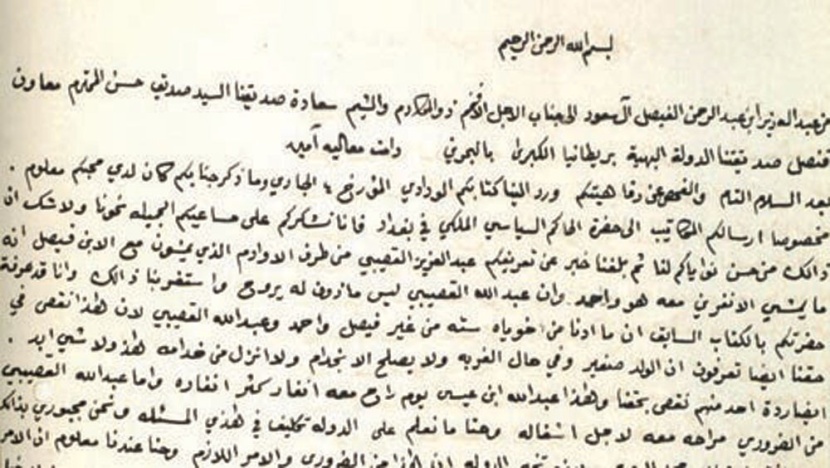 بسم الله الرحمن الرحيم
من عبد العزيز ابن عبد الرحمن الفيصل آل سعود الى جناب الاجل الأفخم ذو المكارم والشيم سعادة صديقنا السيد صديق حسن المحترم معاون
قنصل صديقتنا الدولة البهية بريطانيا الكبرى بالبحرين دامت معاليه آمين
بعد السلام التام والفحص عن رفاهيتكم ورد الينا كتابكم الودادي المؤرخ ٤ الجاري وما ذكر جنابكم كان لدى محبكم معلوم .
مخصوصا ارسالكم المكاتيب الى حضرة الحاكم السياسي الملكي في بغداد فانا نشكركم على مساعيكم الجميله نحونا ولا شك ان
ذالك من حسن نواياكم لنا ثم بلغنا خبر عن تعريفكم عبد العزيز القصيبي من طرف الاوادم الذي يمشون مع الابن فيصل انه
ما يمشي الا نفرين معه هو واحمد وان عبد الله القصيبي ليس ماذون له يروح واستغربنا ذالك وانا قد عرفنا
حضرتكم بالكتاب السابق ان ما ادنا من خوياه سته من غير فيصل واحمد وعبد الله القصيبي لان هذا نقص في
حقنا ايضا تعرفون ان الولد صغير وفي حال الغربه ولا يصلح الا بخدام ولا انزل من خدامه هذولا شي ابد .
ايضا ردة احد منهم نقص بحقنا وهذا عبد الله ابن عيسى يوم راح معه انفار كثر انفاره واما عبد الله القصيبي
من الضروري مراحه معه لاجل اشغاله وحنا ما نعلم على الدوله تكليف في هذي المسئله ونحن مجبورين بذالك
الدوله ان هذا من الضروري والامر اللازم وحنا عندنا معلوم ان الامر